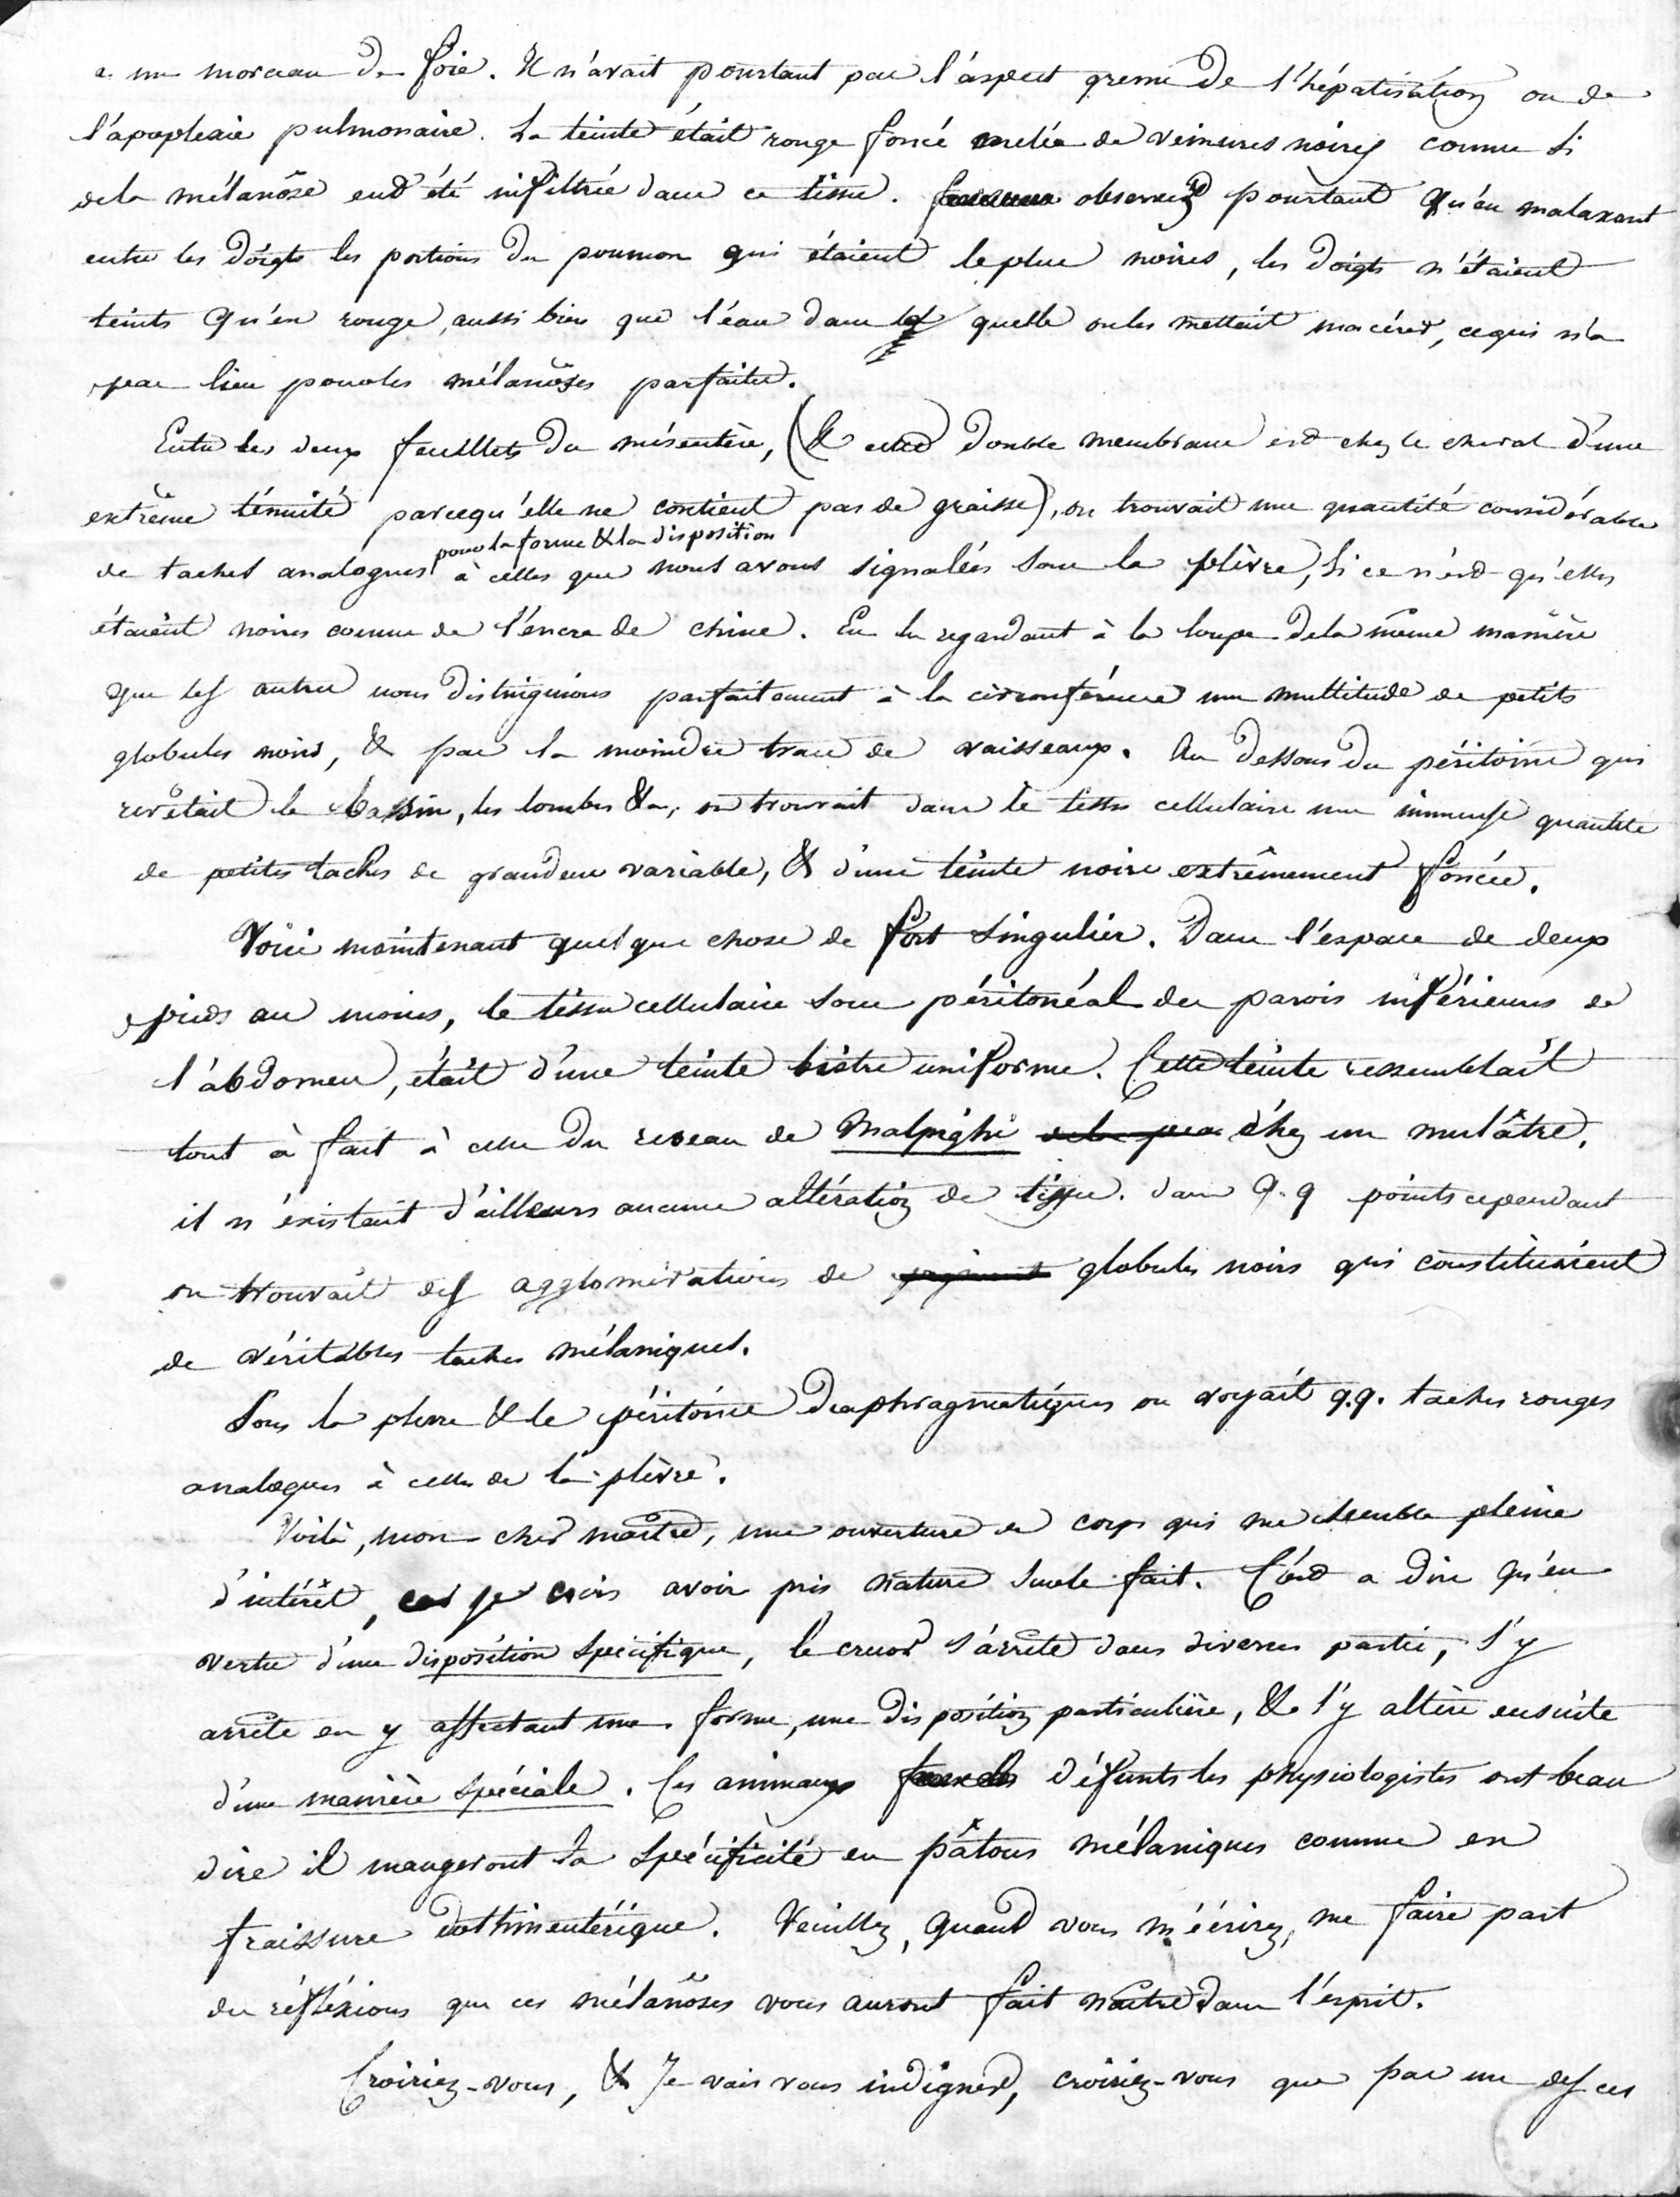 a un morceau de foie. Il n'avait pourtant pas l'aspect grenu de l'hépatisation ou de
l'apoplexie pulmonaire. La teinte était rouge foncé melée de veinures noires comme si
dela mélanôse eut été infiltrée dans ce tissu. observez pourtant qu'en malaxant
entre les doigts les portions du poumon qui étaient le plus noires, les doigts n'étaient
teints qu'en rouge, aussi bien que l'eau dans la quelle on les mettait macérer, cequi n'a
pas lieu pour les mélanôses parfaites.
Entre les deux feuillets du mésentère, (& cette double membrane est chez le cheval d'une
extrême ténuité parcequ'elle ne contient pas de graisse), on trouvait une quantité considérable
pour la forme & la disposition
de taches analogues à celles que nous avons signalées sous la plèvre, si ce n'est qu'elles
étaient noires comme de l'encre de chine. En les regardant à la loupe dela même manière
que les autres nous distinguions parfaitement à la circonférence une multitude de petits
globules noirs, & pas la moindre trace de vaisseaux. Au dessous du péritoine qui
revêtait le bassin, les lombes &a, on trouvait dans le tissu cellulaire une immense quantité
de petites taches de grandeur variable, & d'une teinte noire extrêmement foncée.
Voici maintenant quelque chose de fort singulier. Dans l'espace de deux
pieds au moins, le tissu cellulaire sous péritonéal des parois inférieures de
l'abdomen, était d'une teinte bistre uniforme. Cette teinte ressemblait
tout à fait à celle du reseau de Malpighi de la peau chez un mulâtre.
il n'existait d'ailleurs aucune altération de tissu. dans q.q points cependant
on trouvait des agglomérations de pigment globules noirs qui constituaient
de véritables taches mélaniques.
Sous la plevre & le péritoine diaphragmatiques on voyait q.q. taches rouges
analogues à celles de la plèvre.
Voilà, mon cher maître, une ouverture de corps qui me semble pleine
d'intérêt, car je crois avoir pris nature sur le fait. C'est a dire qu'en
vertu d'une disposition spécifique, le cruor s'arrête dans diverses parties, s'y
arrête en y affectant une forme, une disposition particulière, & s'y altère ensuite
d'une manière spéciale. Ces animaux défunts les physiologistes ont beau
dire il mangeront la spécificité en pâtons mélaniques comme en
fraissure dothinentérique. Veuillez, quand vous m'écrirez, me faire part
des réfléxions que ces mélanôses vous auront fait naître dans l'esprit.
Croiriez-vous, & Je vais vous indigner, croiriez-vous que pas un des ces